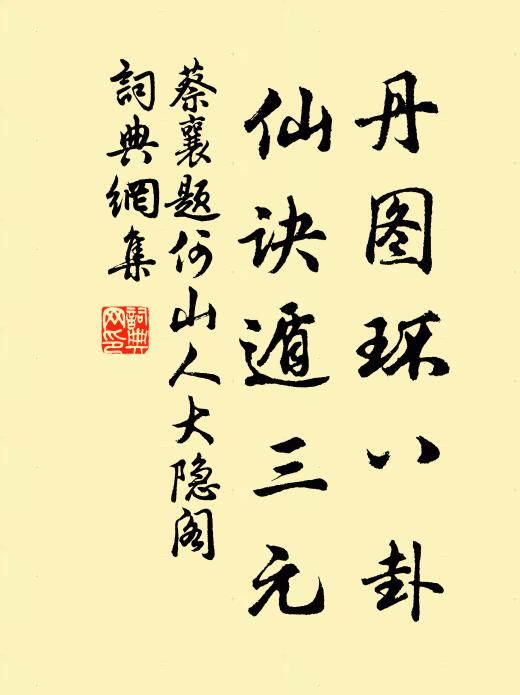 丹图环八卦
仙诀遁三元
蔡襄题何山人大隐阁
詞典網集
詞典网印